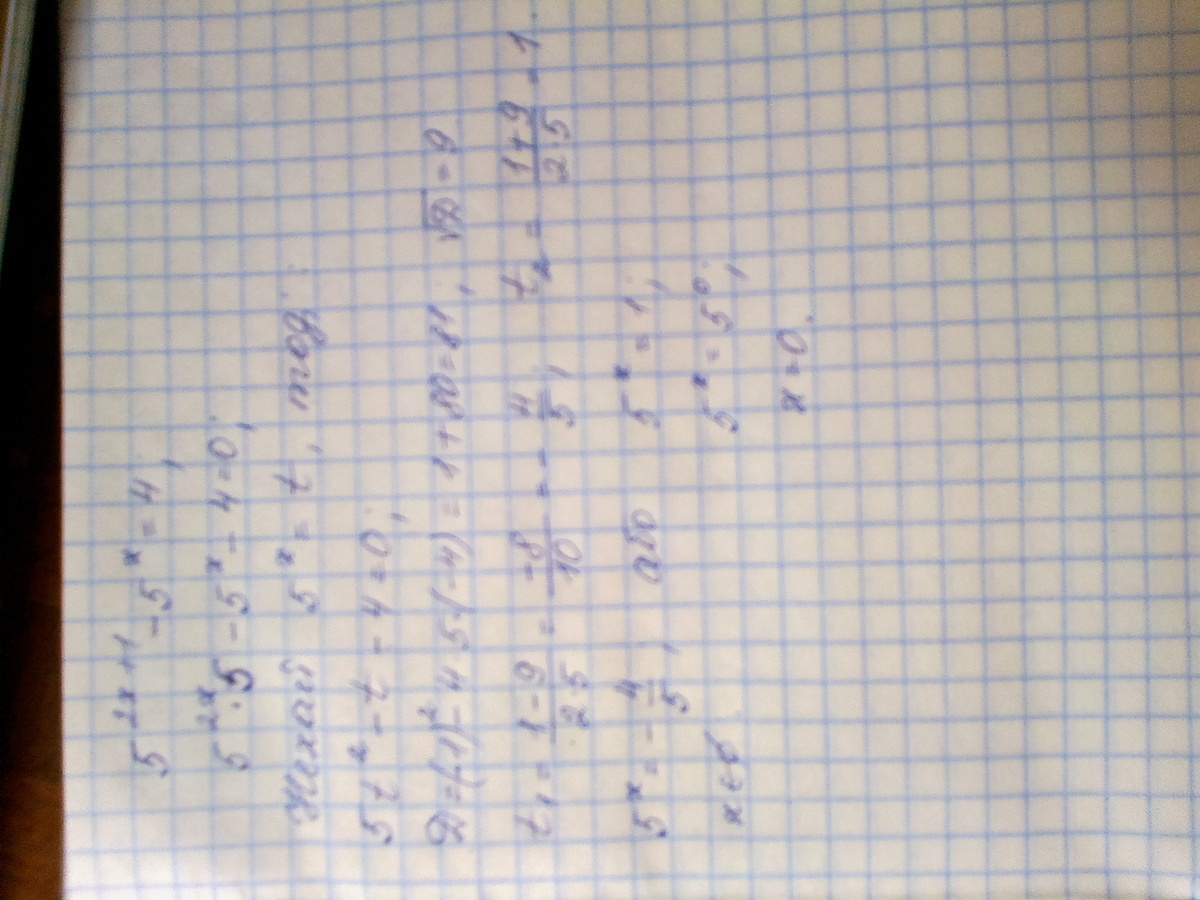 5^{2x+1} - 5^x = 4;
5^{2x}·5 - 5^x - 4 = 0;
Нехай 5^x = t, тоді:
5t² - t - 4 = 0;
D = (-1)² - 4·5·(-4) = 1 + 80 = 81, √D = 9
t₁ = (1-9)/(2·5) = (-8)/10 = -4/5, t₂ = (1+9)/(2·5) = 1.
5^x = -4/5, або 5^x = 1;
x∈∅ 5^x = 5⁰;
x = 0.